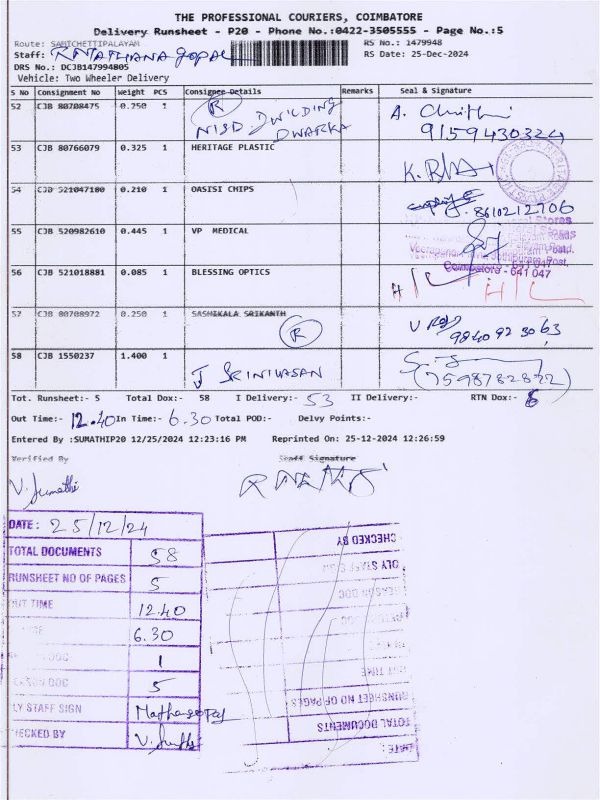 THE PROFESSIONAL COURIERS, COIMBATORE
Delivery Runsheet - P20 - Phone No.:0422-3505555 - Page No.:5
Route: SANICHETTIPALAYAM RS No.: 1479948
Staff: RS Date: 25-Dec-2024
DRS No.: DCJB147994805
Vehicle: Two Wheeler Delivery
S No Consignment No Weight PCS Consignee Details Remarks Seal & Signature
52 CJB 80708475 0.750 1 R
NISD DWILDING
DWARKA
9159430324
53 CJB 80766079 0.325 1 HERITAGE PLASTIC
54 CJB 521047180 0.210 1 OASISI CHIPS
8610212706
55 CJB 520982610 0.445 1 VP MEDICAL
Coimbatore - 641 047
56 CJB 521018881 0.085 1 BLESSING OPTICS
57 CJB 80708972 0.250 1 SASHIKALA SRIKANTH
R
9840923063
58 CJB 1550237 1.400 1 J SRINIVASAN
(7598782822)
Tot. Runsheet:- 5 Total Dox:- 58 I Delivery:- 53 II Delivery:- RTN Dox:-
Out Time:- 12.40 In Time:- 6.30 Total POD:- Delvy Points:-
Entered By :SUMATHIP20 12/25/2024 12:23:16 PM Reprinted On: 25-12-2024 12:26:59
Verified By Staff Signature
V. Sumathi
DATE: 25/12/24
TOTAL DOCUMENTS 58
RUNSHEET NO OF PAGES 5
OUT TIME 12.40
6.30
1
5
LY STAFF SIGN
CHECKED BY
CHECKED BY
DLY STAFF SIGN
REASON DOC
OUT TIME
RUNSHEET NO OF PAGES
TOTAL DOCUMENTS
DATE: